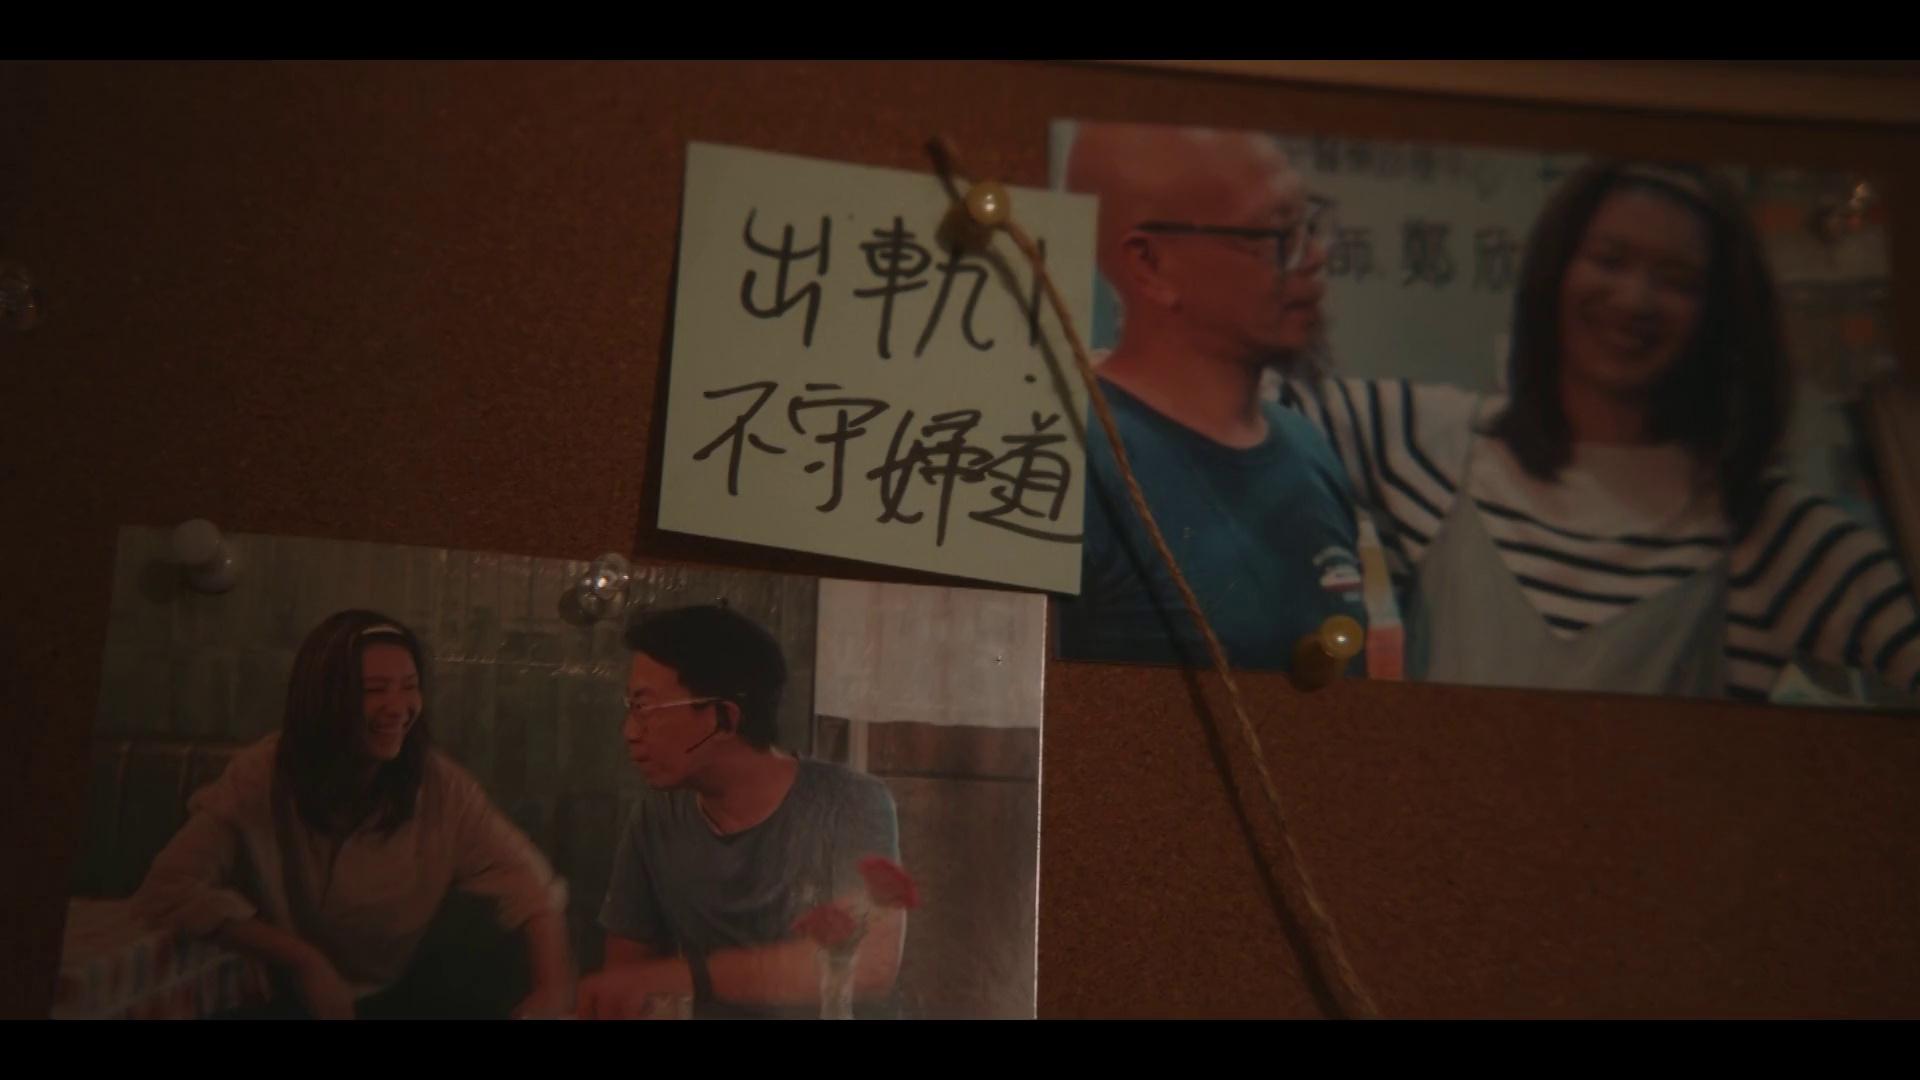 出軌!
不守婦道
師 鄭欣